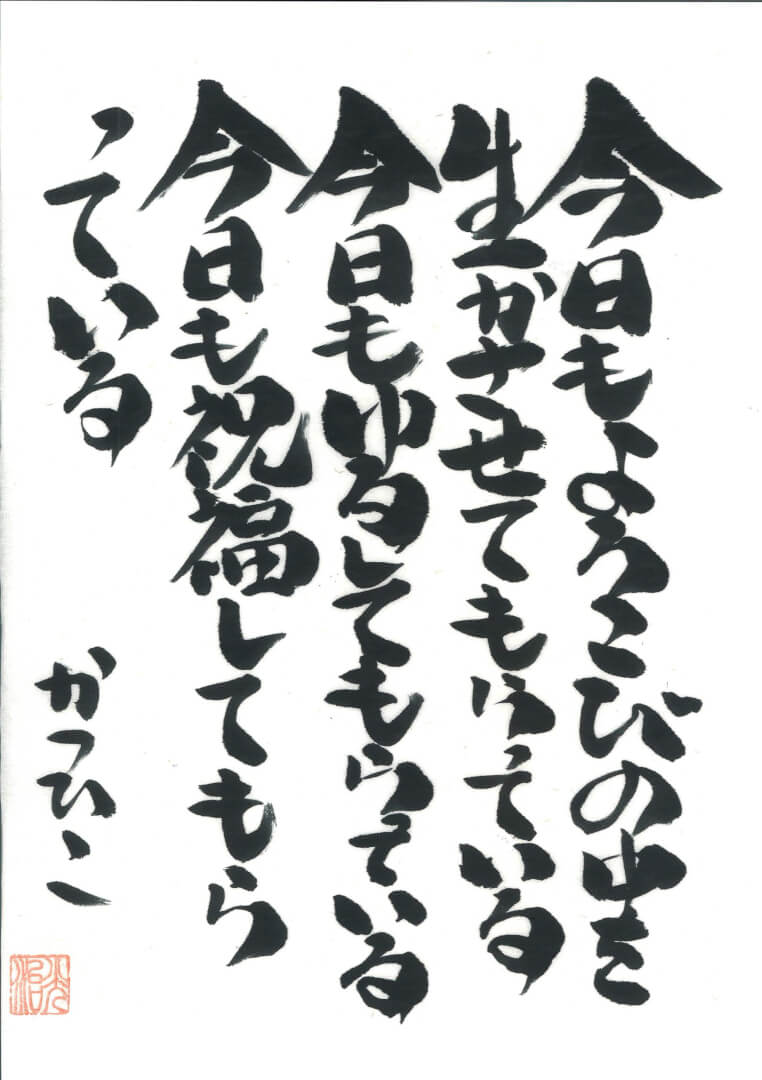 今日もよろこびの中を
生かさせてもらっている
今日もゆるしてもらっている
今日も祝福してもら
っている
かつひこ